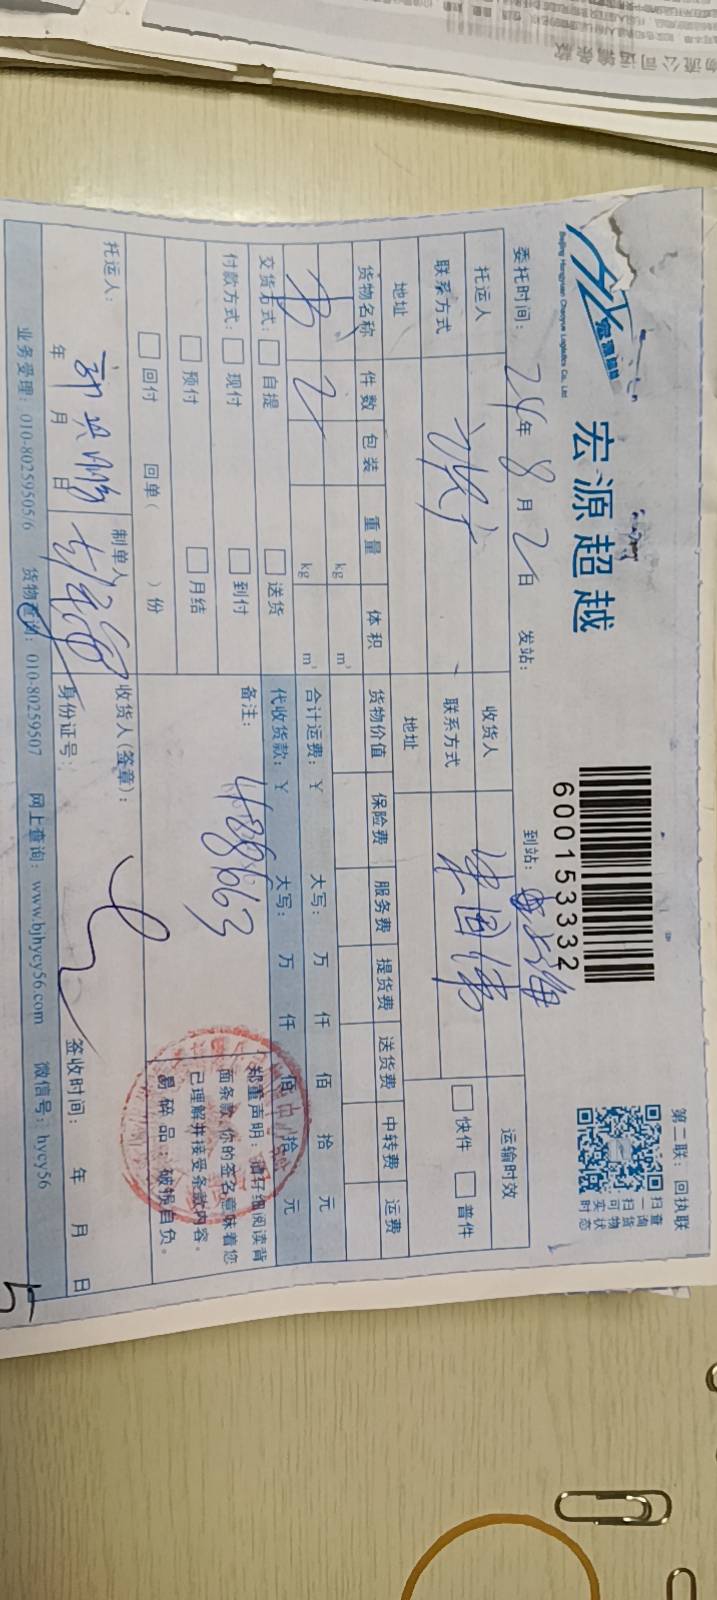 物流公司运输条款
Beijing Hongyuan Chaoyue Logistics Co., Ltd
宏源超越
宏源超越
6001533332
第二联：回执联
扫一扫可实时
查询货物状态
委托时间：24年8月2日 发站： 到站：
托运人 收货人 运输时效
联系方式 联系方式 快件 普件
地址 地址
货物名称 件数 包装 重量 体积 货物价值 保险费 服务费 提货费 送货费 中转费 运费
2 kg m³
kg m³ 合计运费：¥ 大写： 万 仟 佰 拾 元
交货方式： 自提 送货 代收货款：¥ 大写： 万 仟 佰 拾 元
付款方式： 现付 到付 备注：
预付 月结 488663
回付 回单（ ）份
郑重声明：请仔细阅读背
面条款，你的签名意味着您
已理解并接受条款内容。
易碎品：破损自负。
托运人： 制单人 收货人（签章）：
年 月 日 身份证号： 签收时间： 年 月 日
业务受理：010-80259505/6 货物查询：010-80259507 网上查询：www.bjhycy56.com 微信号：hycy56
5